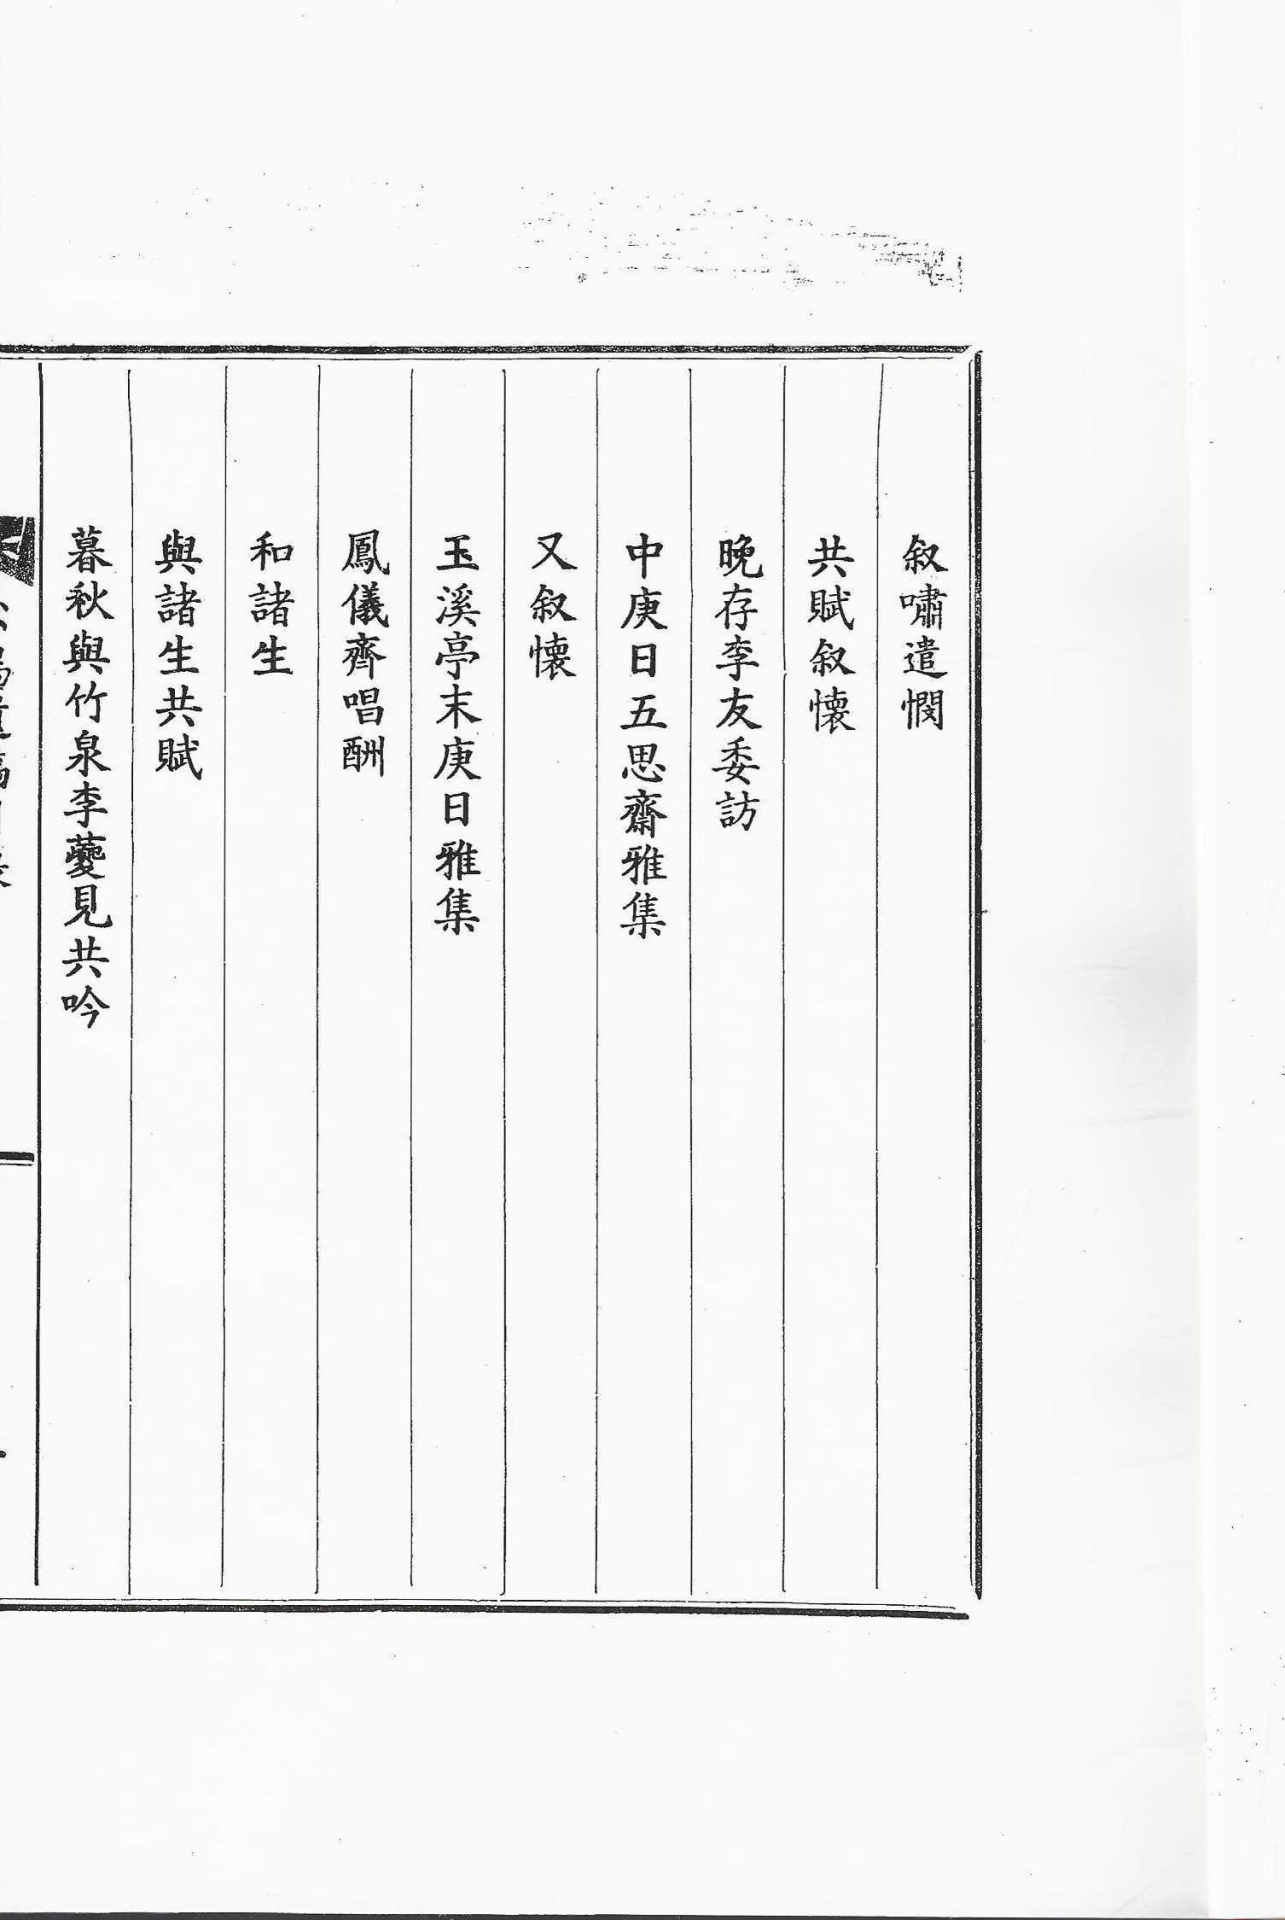 叙嘯遣憫
共賦叙懷
晚存李友委訪
中庚日五思齋雅集
又叙懷
玉溪亭末庚日雅集
鳳儀齊唱酬
和諸生
與諸生共賦
暮秋與竹泉李夔見共吟